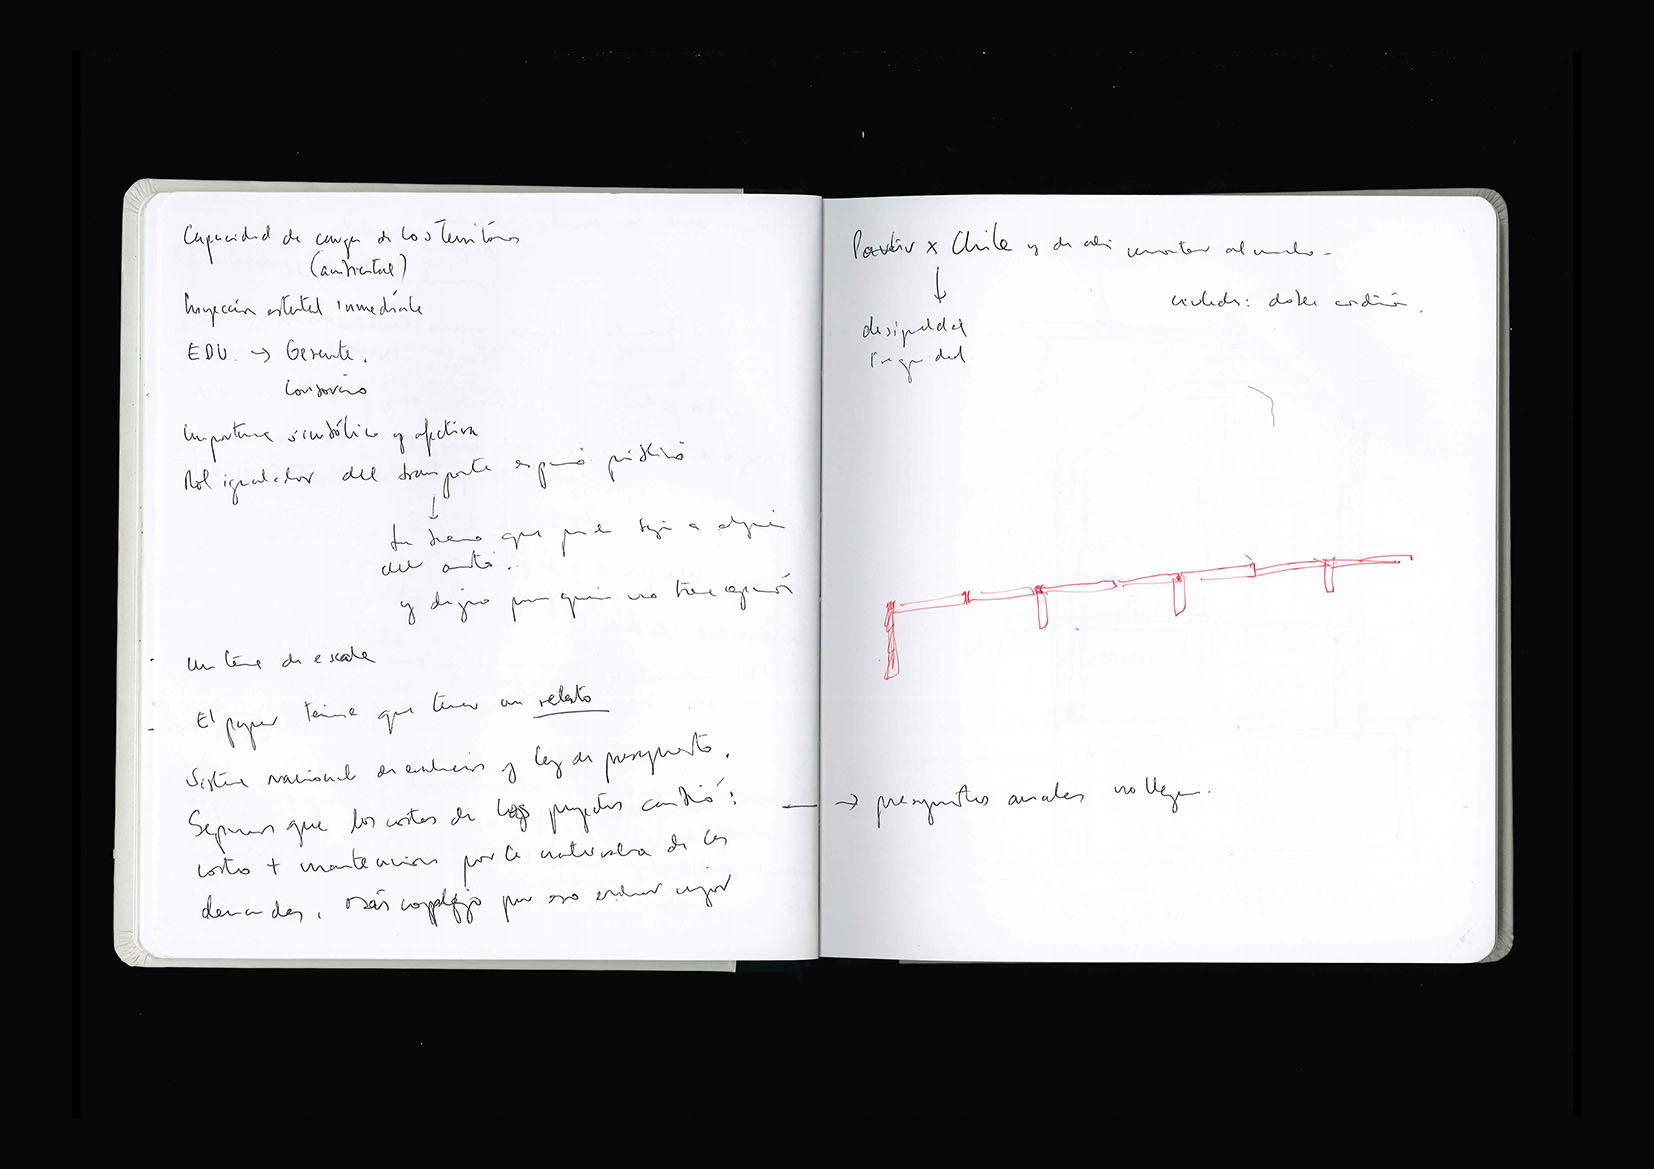 Capacidad de carga de los territorios
(ambiental)
Proyección estatal inmediata
EDU → Gerente.
Consorcio
Importancia simbólica y afectiva
Rol igualador del transporte espacio público
del auto.
y digno para quien no tiene opción
un tema de escala
El paper tiene que tener un relato
Sistema nacional de evaluación y ley de presupuesto.
que los costos de los proyectos cambió:
costo + mantención por la naturaleza de las
demandas. Más complejo por eso evaluar mejor
Partir x Chile y de ahí al mundo -
↓
desigualdad
: doble condición.
→ presupuestos anuales no llegan.